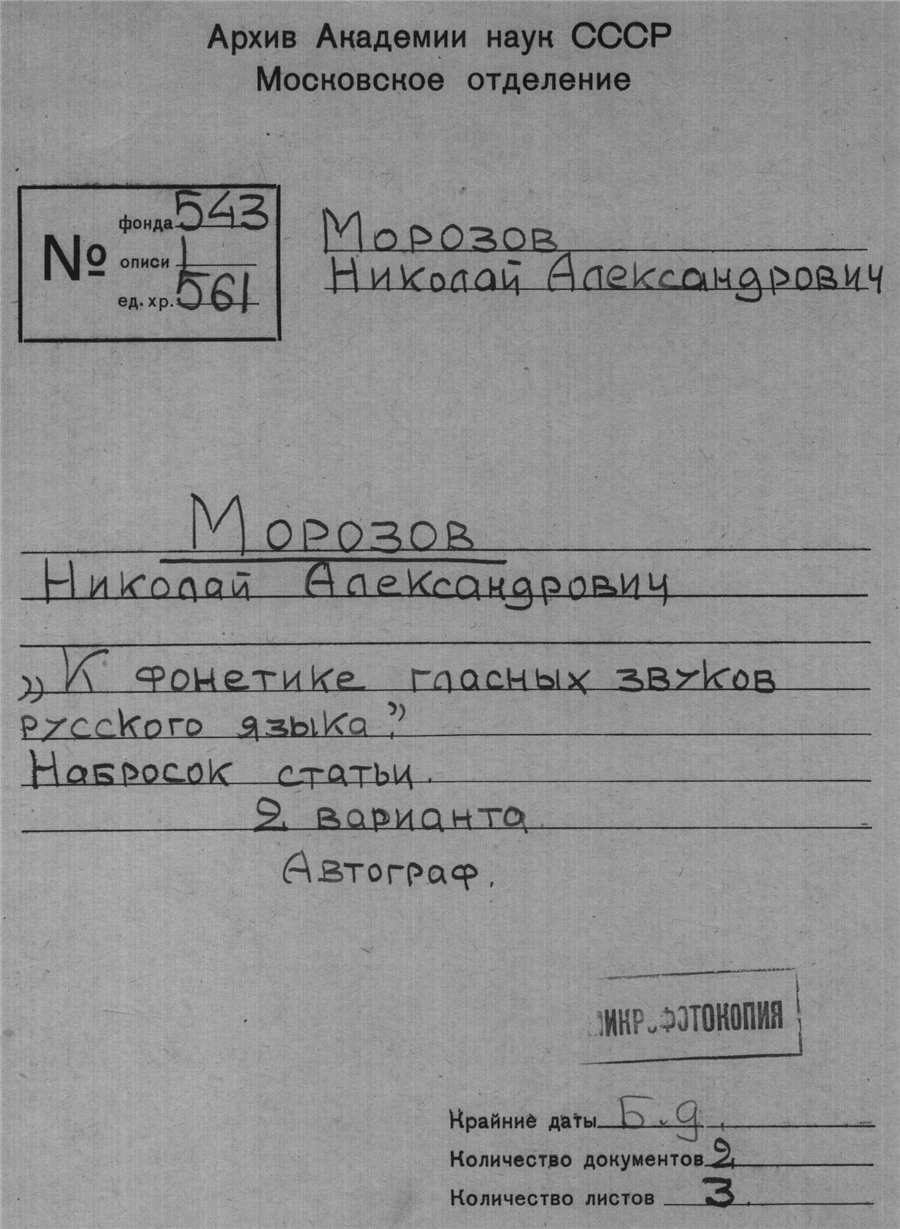 Архив Академии наук СССР
Московское отделение
№
фонда 543
описи 1
ед. хр. 561
Морозов
Николай Александрович
Морозов
Николай Александрович
„К фонетике гласных звуков
русского языка”.
Набросок статьи.
2 варианта
Автограф.
МИКРОФОТОКОПИЯ
Крайние даты Б.д.
Количество документов 2
Количество листов 3